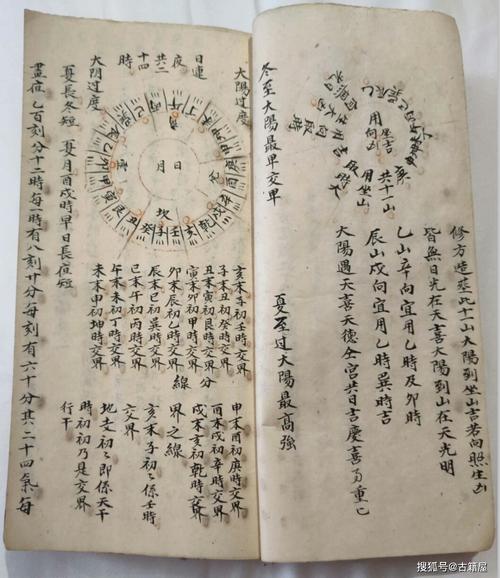 用
坐吉
向
共十一山
用坐山
修方造葬此十一山太陽到坐山吉若向照生凶
皆無日光在天喜太陽到山在天光明
乙山辛向宜用乙時及卯時
辰山戌向宜用乙時巽時吉
太陽過天喜天德仝宮共日吉慶喜
夏至過太陽最高強
冬至太陽最卑交界
太陽過度
日連
夜
共二
十四
時
太陰過度
日
月
坎
子
壬
亥
乾
戌
辛
酉
庚
癸
丑
艮
寅
甲
卯
乙
巳
午
丁
亥末子初壬時交界
子末丑初癸時交界
丑末寅初艮時交界分
寅末卯初甲時交界
卯末辰初乙時交界線
辰末巳初巽時交界
巳末午初丙時交界
午末未初丁時交界
未末申初坤時交界
申末酉初庚時交界
酉末戌初辛時交界
戌末亥初乾時交界
界之線
亥末子初々係壬時
交界
地支初々即係天干
時初初乃是交界
行干
夏長冬短 夏月酉戌時早日長夜短
晝夜乙百刻分十二時每一時有八刻廿分每刻有六十分其二十四氣每
搜狐号@古籍屋